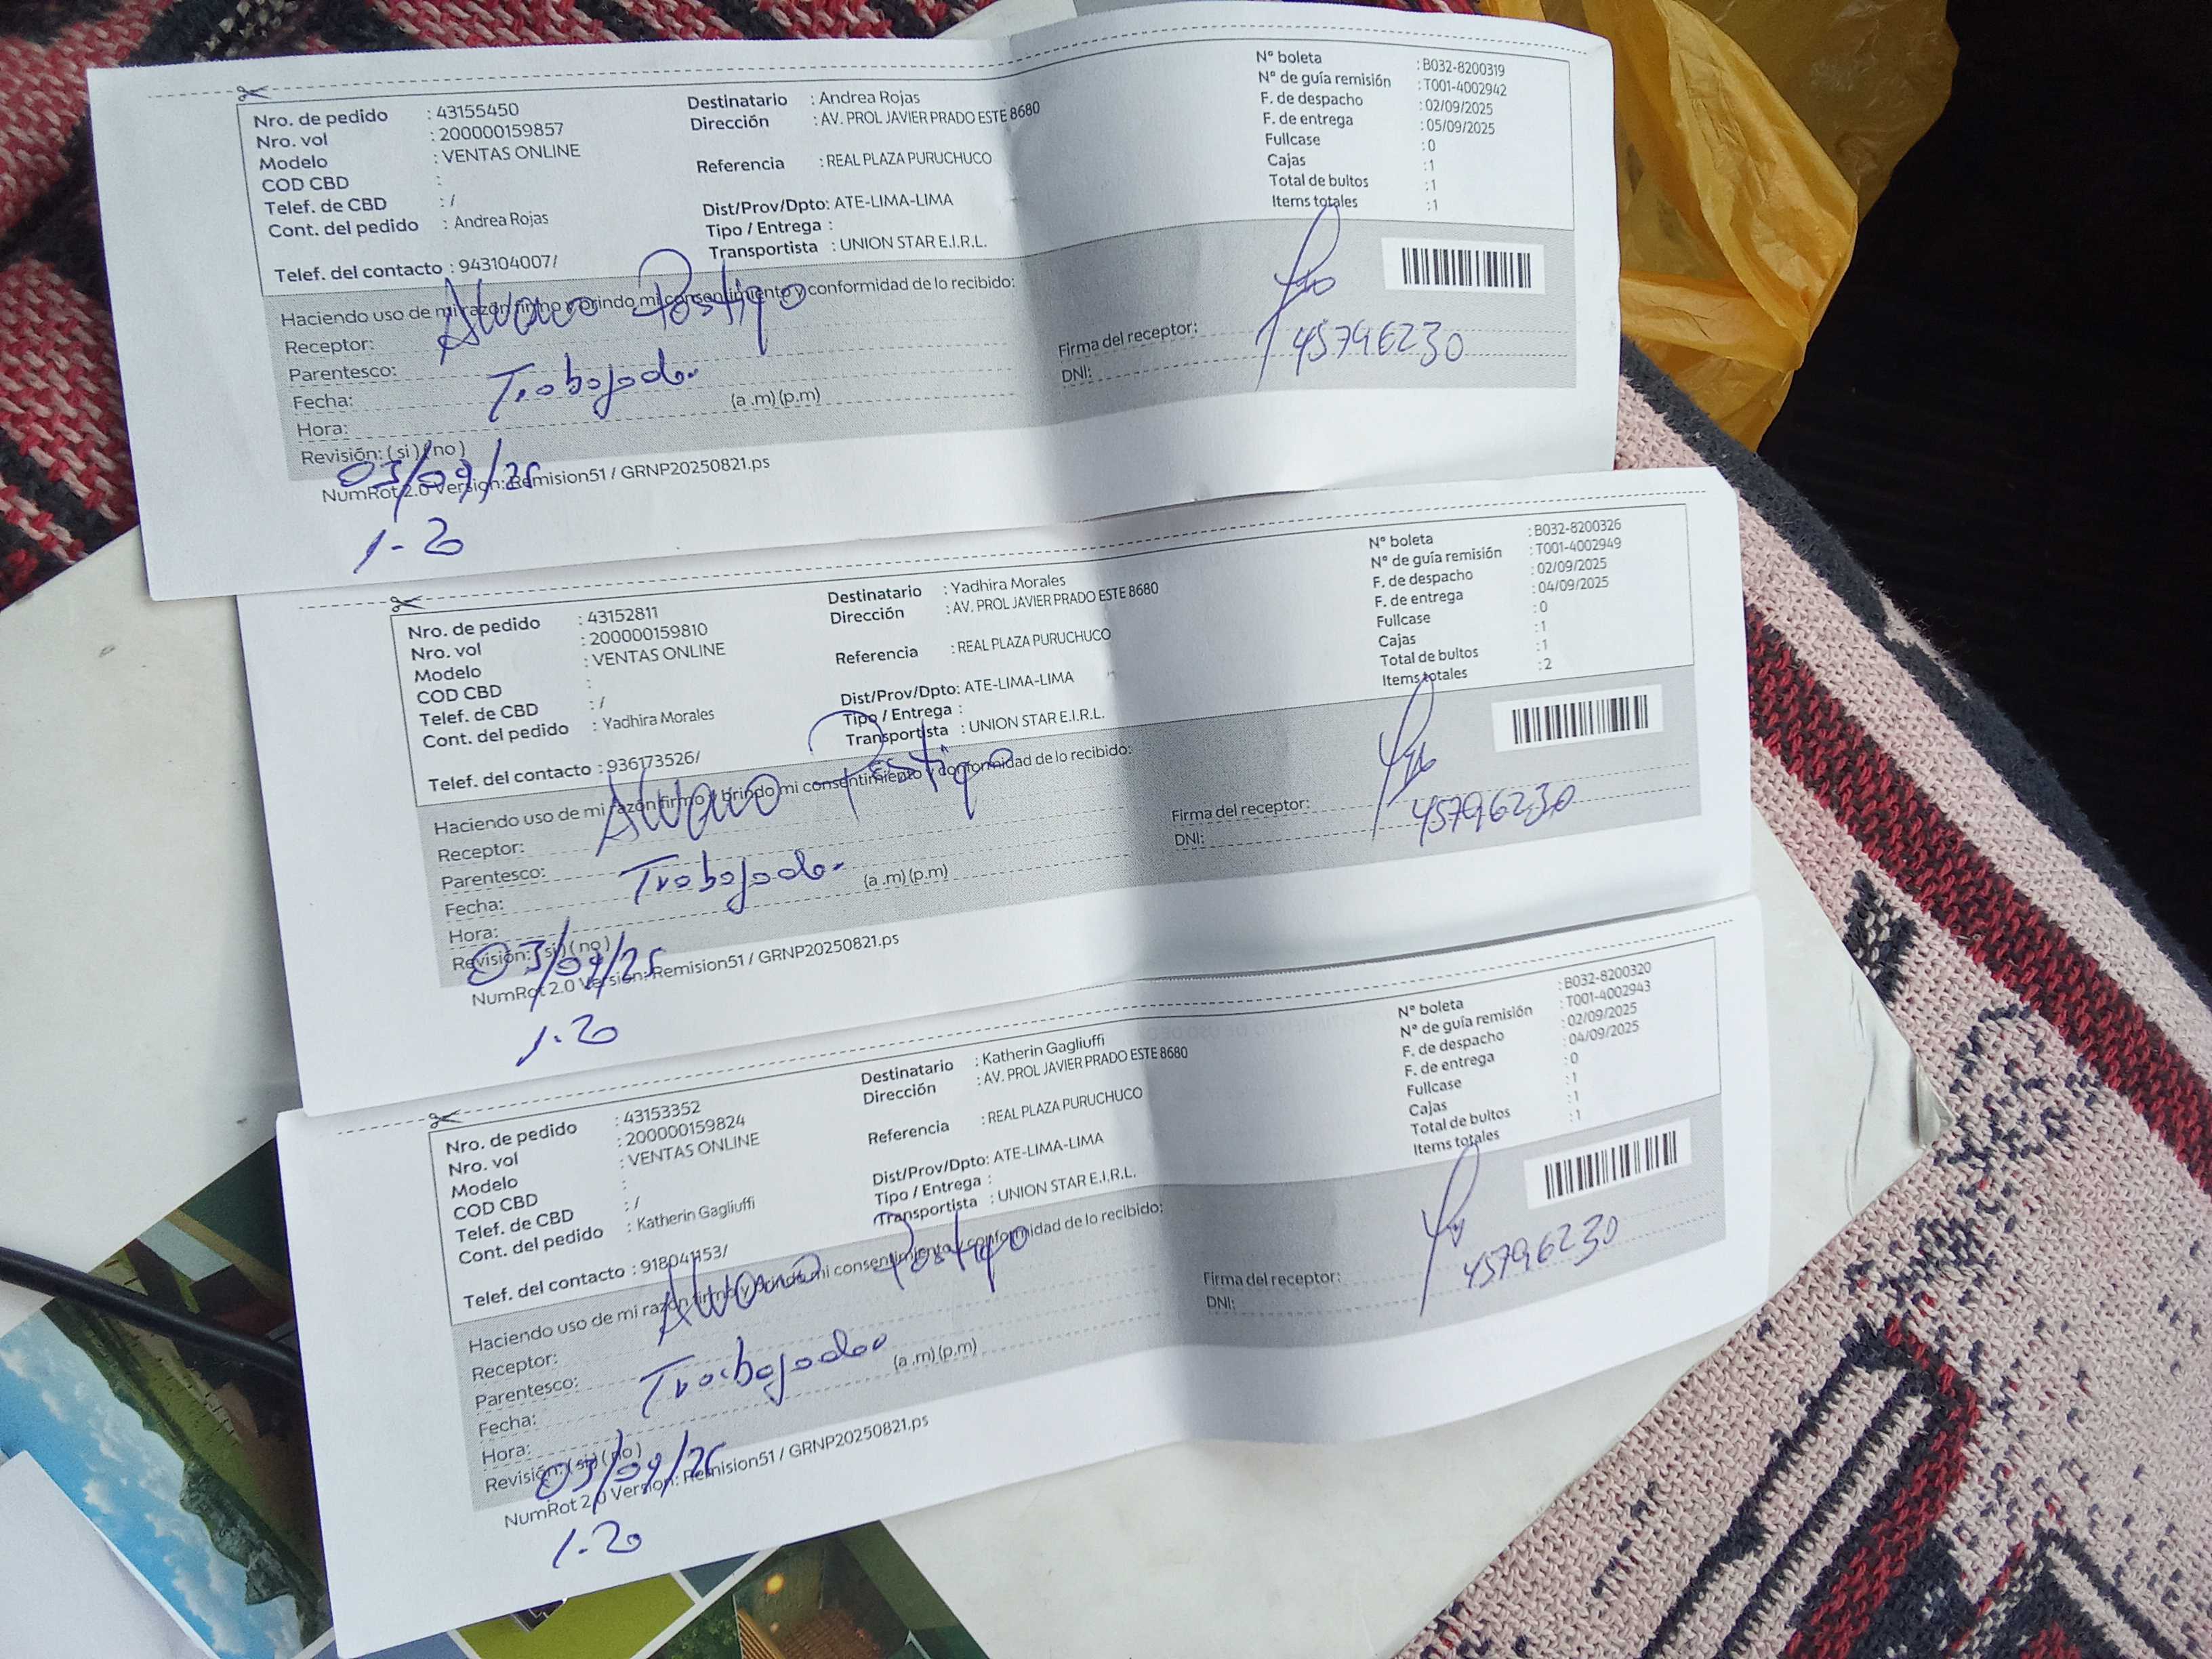 Nro. de pedido : 43155450
Nro. vol : 200000159857
Modelo : VENTAS ONLINE
COD CBD :
Telef. de CBD : /
Cont. del pedido : Andrea Rojas
Telef. del contacto : 943104007/
Destinatario : Andrea Rojas
Dirección : AV. PROL JAVIER PRADO ESTE 8680
Referencia : REAL PLAZA PURUCHUCO
Dist/Prov/Dpto: ATE-LIMA-LIMA
Tipo / Entrega :
Transportista : UNION STAR E.I.R.L.
N° boleta : B032-8200319
N° de guía remisión : T001-4002942
F. de despacho : 02/09/2025
F. de entrega : 05/09/2025
Fullcase : 0
Cajas : 1
Total de bultos : 1
Items totales : 1
Haciendo uso de mi razón firmo y brindo mi consentimiento y conformidad de lo recibido:
Receptor: Alvaro Postigo
Parentesco: Trabajador
Fecha:
Hora: (a .m) (p.m)
Revisión: ( si ) ( no )
03/09/25
NumRot 2.0 Version: Remision51 / GRNP20250821.ps
1-20
Firma del receptor:
DNI: 45796230
Nro. de pedido : 43152811
Nro. vol : 200000159810
Modelo : VENTAS ONLINE
COD CBD :
Telef. de CBD : /
Cont. del pedido : Yadhira Morales
Telef. del contacto : 936173526/
Destinatario : Yadhira Morales
Dirección : AV. PROL JAVIER PRADO ESTE 8680
Referencia : REAL PLAZA PURUCHUCO
Dist/Prov/Dpto: ATE-LIMA-LIMA
Tipo / Entrega :
Transportista : UNION STAR E.I.R.L.
N° boleta : B032-8200326
N° de guía remisión : T001-4002949
F. de despacho : 02/09/2025
F. de entrega : 04/09/2025
Fullcase : 0
Cajas : 1
Total de bultos : 1
Items totales : 2
Haciendo uso de mi razón firmo y brindo mi consentimiento y conformidad de lo recibido:
Receptor: Alvaro Postigo
Parentesco: Trabajador
Fecha:
Hora: (a .m) (p.m)
Revisión: ( si ) ( no )
03/09/25
NumRot 2.0 Version: Remision51 / GRNP20250821.ps
1.20
Firma del receptor:
DNI: 45796230
Nro. de pedido : 43153352
Nro. vol : 200000159824
Modelo : VENTAS ONLINE
COD CBD :
Telef. de CBD : /
Cont. del pedido : Katherin Gagliuffi
Telef. del contacto : 918041153/
Destinatario : Katherin Gagliuffi
Dirección : AV. PROL JAVIER PRADO ESTE 8680
Referencia : REAL PLAZA PURUCHUCO
Dist/Prov/Dpto: ATE-LIMA-LIMA
Tipo / Entrega :
Transportista : UNION STAR E.I.R.L.
N° boleta : B032-8200320
N° de guía remisión : T001-4002943
F. de despacho : 02/09/2025
F. de entrega : 04/09/2025
Fullcase : 0
Cajas : 1
Total de bultos : 1
Items totales : 1
Haciendo uso de mi razón firmo y brindo mi consentimiento y conformidad de lo recibido:
Receptor: Alvaro Postigo
Parentesco: Trabajador
Fecha:
Hora: (a .m) (p.m)
Revisión: ( si ) ( no )
03/09/25
NumRot 2.0 Version: Remision51 / GRNP20250821.ps
1.20
Firma del receptor:
DNI: 45796230